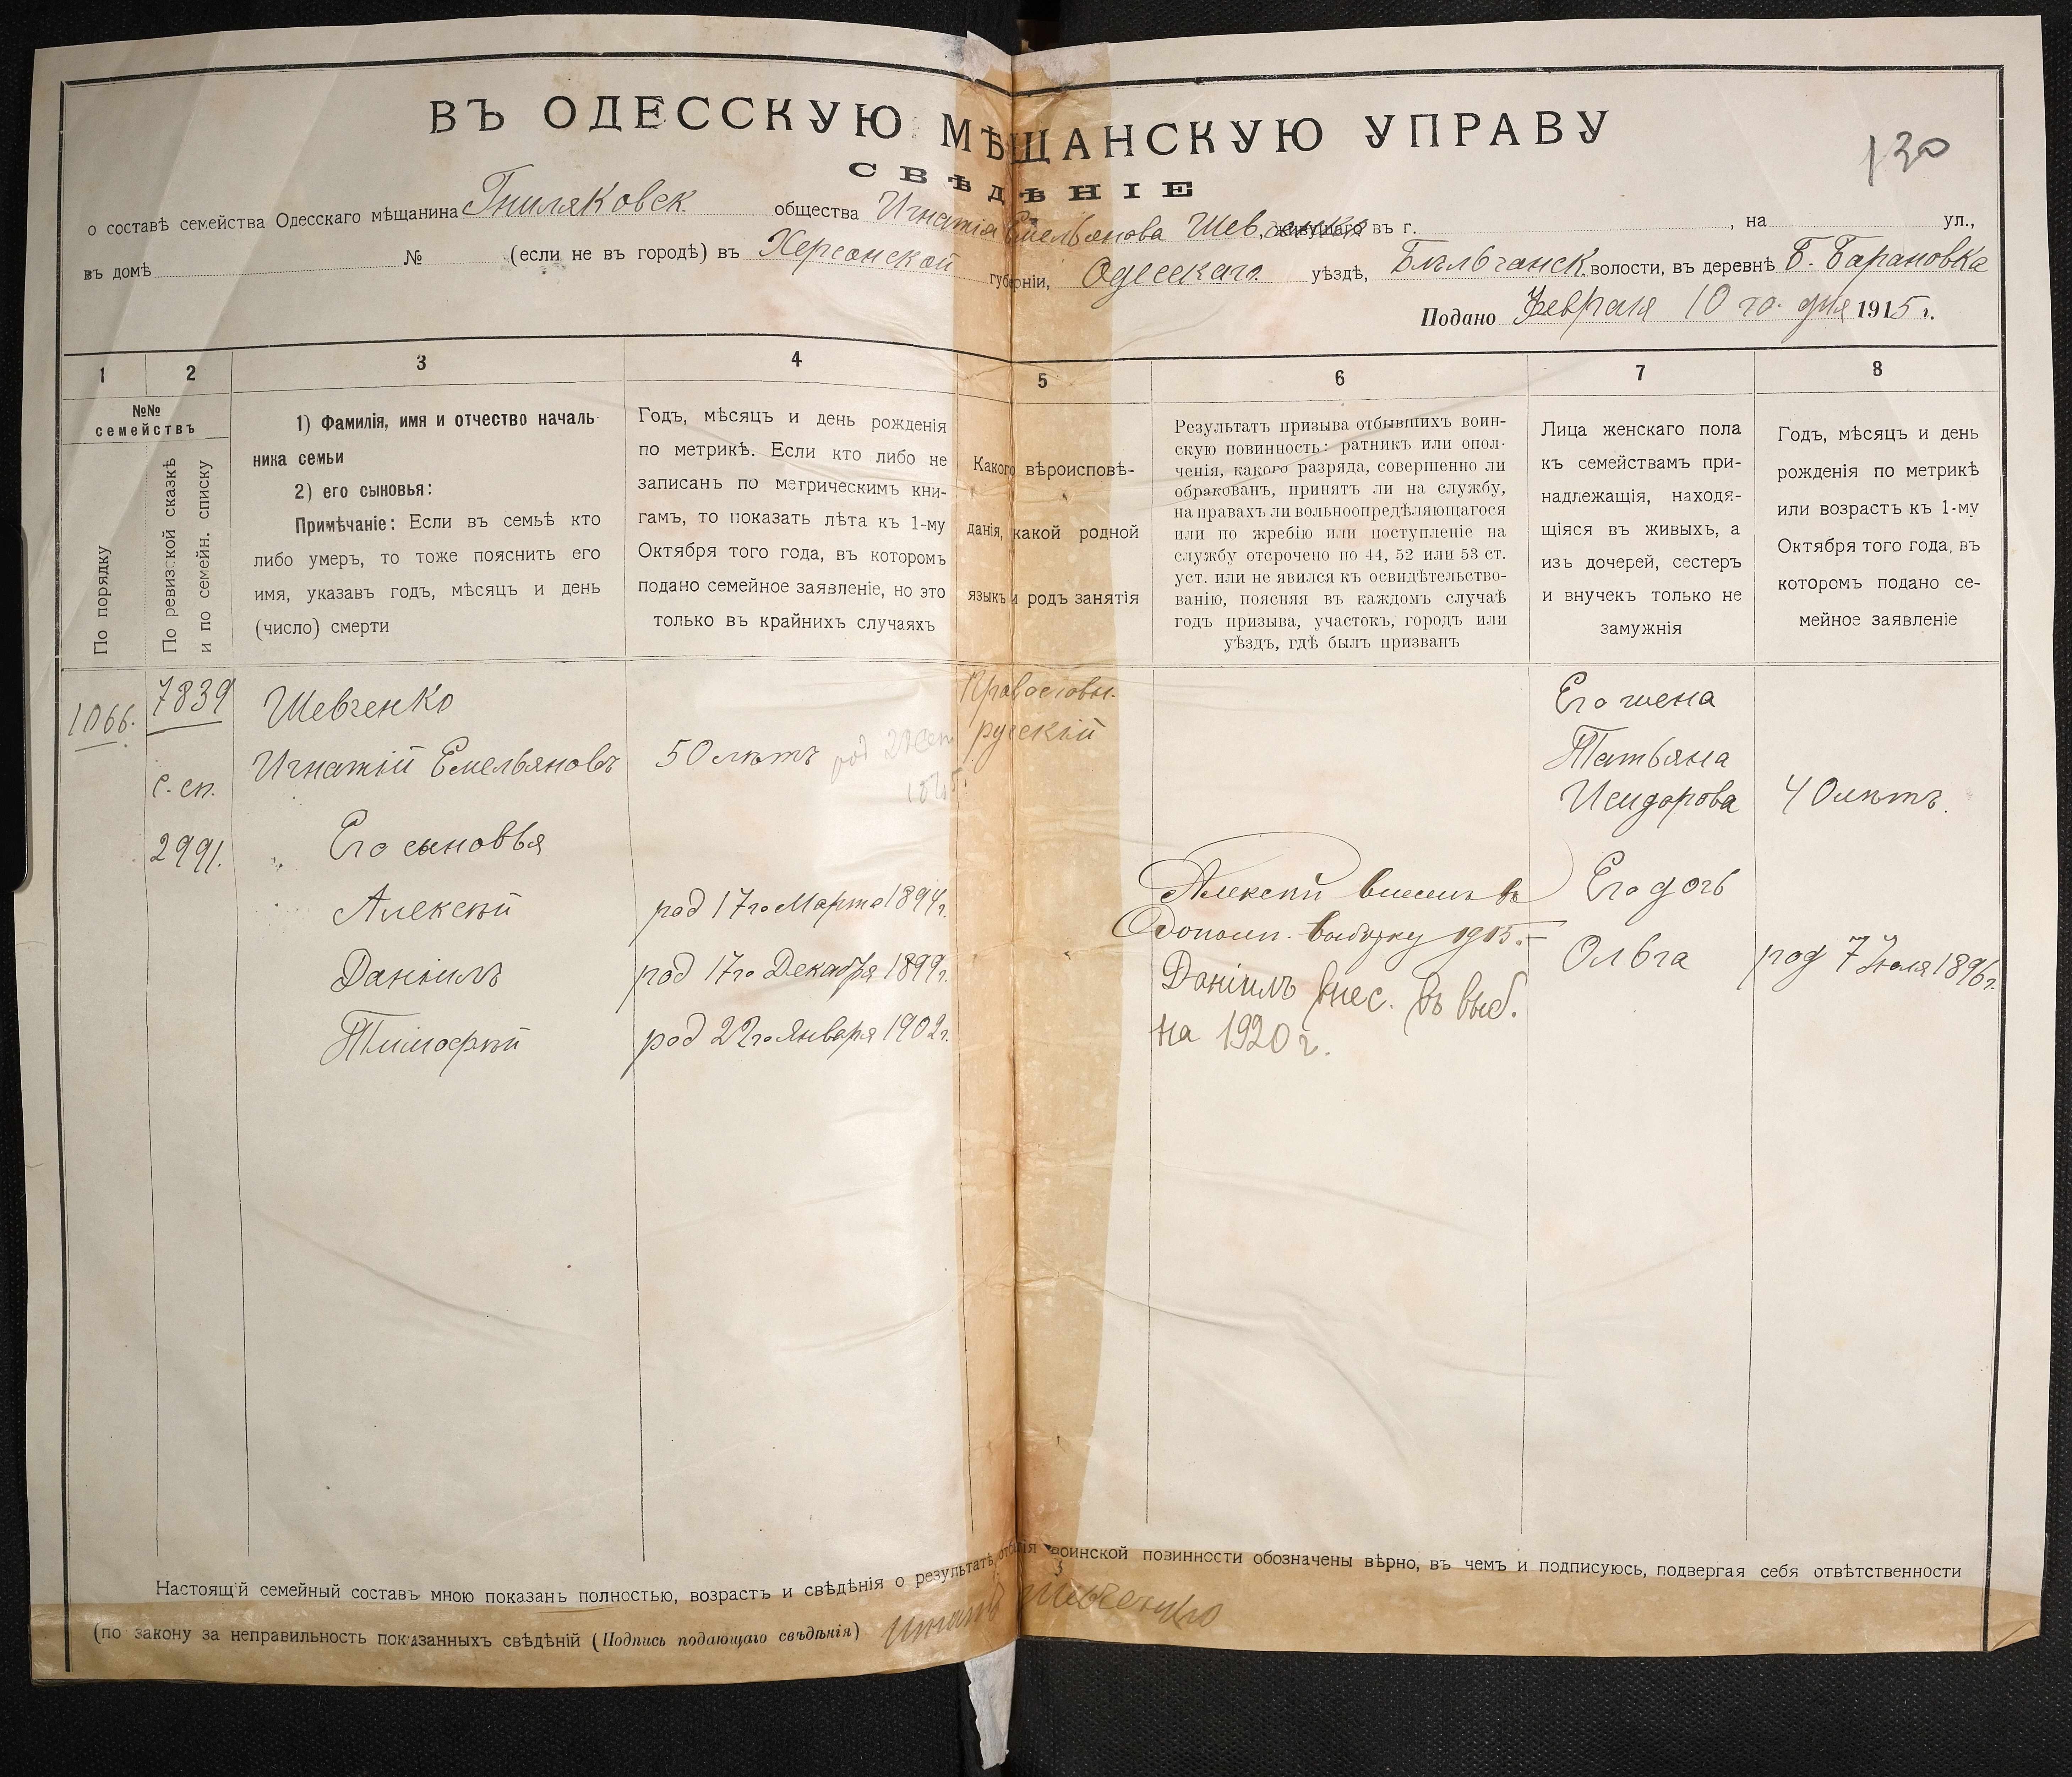 ВЪ ОДЕССКУЮ МѢЩАНСКУЮ УПРАВУ
130
СВѢДѢНІЕ
о составѣ семейства Одесскаго мѣщанина Гниляковск. общества Игнатія Емельянова Шевченко, живущаго въ г. , на ул.,
въ домѣ № (если не въ городѣ) въ Херсонской губерніи, Одесскаго уѣзда, волости, въ деревнѣ Б. Барановка
Подано Февраля 10 го. дня 1915 г.
1 2 3 4 5 6 7 8
№№ семействъ
По порядку
По ревизской сказкѣ
и по семейн. списку
1) Фамилія, имя и отчество началь-
ника семьи
2) его сыновья:
Примѣчаніе: Если въ семьѣ кто
либо умеръ, то тоже пояснить его
имя, указавъ годъ, мѣсяцъ и день
(число) смерти
Годъ, мѣсяцъ и день рожденія
по метрикѣ. Если кто либо не
записанъ по метрическимъ кни-
гамъ, то показать лѣта къ 1-му
Октября того года, въ которомъ
подано семейное заявленіе, но это
только въ крайнихъ случаяхъ
Какого вѣроисповѣ-
данія, какой родной
языкъ и родъ занятія
Результатъ призыва отбывшихъ воин-
скую повинность: ратникъ или опол-
ченія, какого разряда, совершенно ли
обракованъ, принятъ ли на службу,
на правахъ ли вольноопредѣляющагося
или по жребію или поступленіе на
службу отсрочено по 44, 52 или 53 ст.
уст. или не явился къ освидѣтельство-
ванію, поясняя въ каждомъ случаѣ
годъ призыва, участокъ, городъ или
уѣздъ, гдѣ былъ призванъ
Лица женскаго пола
къ семействамъ при-
надлежащія, находя-
щіяся въ живыхъ, а
изъ дочерей, сестеръ
и внучекъ только не
замужнія
Годъ, мѣсяцъ и день
рожденія по метрикѣ
или возрастъ къ 1-му
Октября того года, въ
которомъ подано се-
мейное заявленіе
1066.
7839
с. сп.
2991.
Шевченко
Игнатій Емельяновъ
Его сыновья
Алексѣй
Даніилъ
Тимофѣй
50 лѣтъ
род 17го Марта 1894г.
род 17го Декабря 1899г.
род 22го Января 1902г.
Православн.
русскій
Алексѣй внесенъ въ
дополн. выборку 1915.
Даніилъ внес. въ выб.
на 1920 г.
Его жена
Татьяна
Исидорова
Его дочь
Ольга
40 лѣтъ.
род 7 Іюля 1896г.
Настоящій семейный составъ мною показанъ полностью, возрастъ и свѣдѣнія о результатѣ отбытія воинской повинности обозначены вѣрно, въ чемъ и подписуюсь, подвергая себя отвѣтственности
(по закону за неправильность показанныхъ свѣдѣній (Подпись подающаго свѣдѣнія) Игнатъ Шевченко